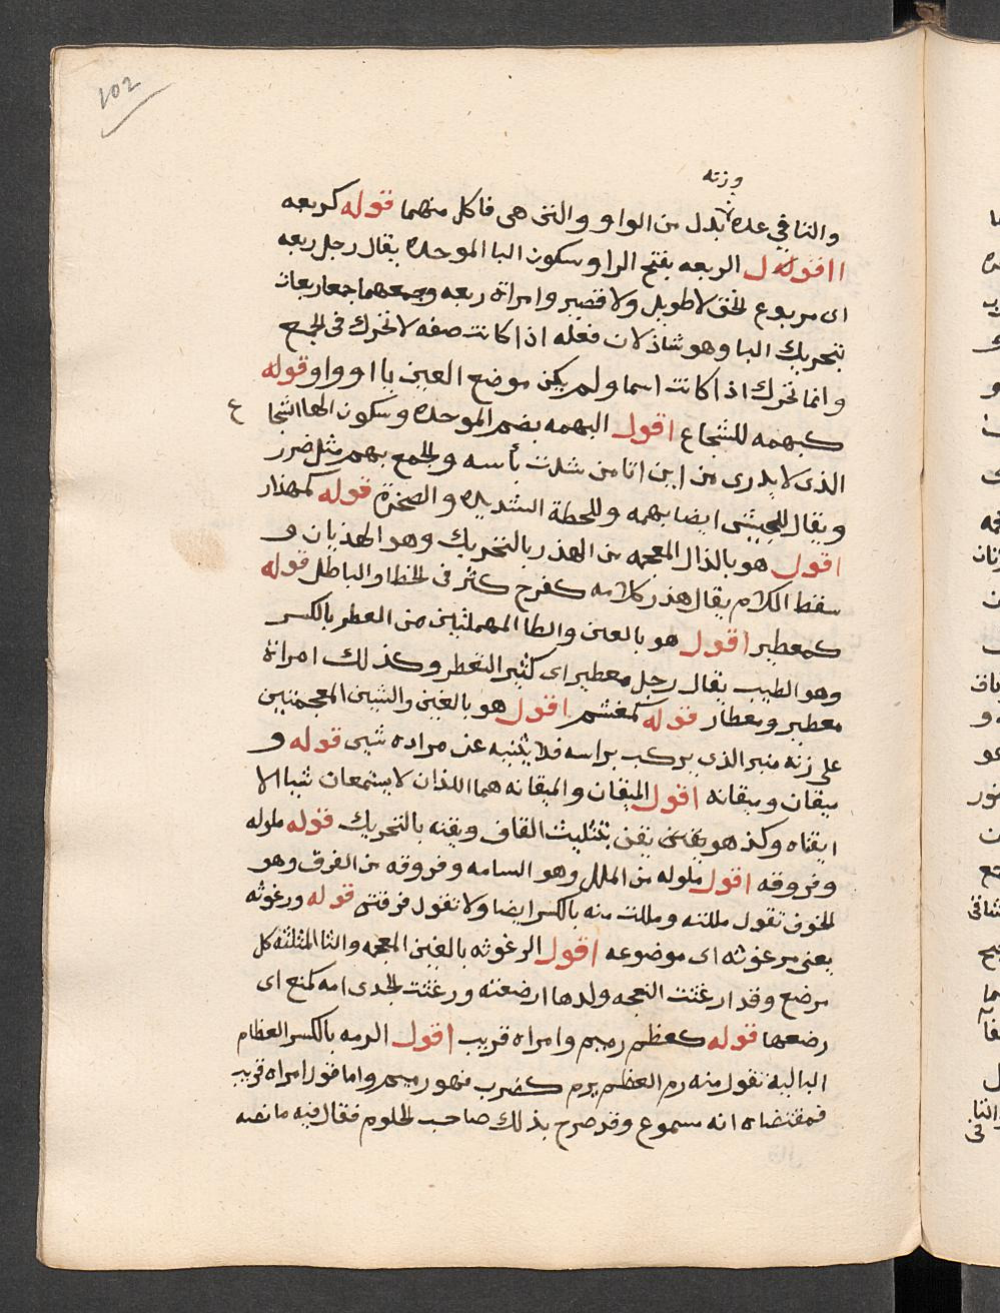 102
وزنه
والتا في عده بدل من الواو والتى هى فا كل منهما قوله كربعه
اقول الربعه بفتح الرا وسكون البا الموحده يقال رجل ربعه
اى مربوع الخق لا طويل ولا قصير وامراة ربعه وجمعهما جمعا ربعات
بتحريك البا وهو شاذ لان فعله اذا كانت صفه لا تحرك فى الجمع
وانما تحرك اذا كانت اسما ولم يكن موضع العين يا او واو قوله
كبهمه للشجاع اقول البهمه بضم الموحده وسكون الها الشجاع
الذى لا يدرى من اين اتا من شدت بأسه والجمع بهم مثل ضرر
ويقال للجيش ايضا بهمه وللحطة الشديده والصخرة قوله كمهذار
اقول هو بالذال المعجمه من الهذر بالتحريك وهو الهذيان و
سقط الكلام يقال هذر كلامه كفرح كثر فى الخطا والباطل قوله
كمعطير اقول هو بالعين والطا المهملتين من العطر بالكسر
وهو الطيب يقال رجل معطير اى كثير التعطر وكذلك امراة
معطير ومعطار قوله كمغشم اقول هو بالغين والشين المعجمتين
على زنه منبر الذى يركب براسه فلا يثنيه عن مراده شيى قوله و
ميقان وميقانه اقول الميقان والميقانه هما اللذان لا يسمعان شيا الا
ايقناه وكذ هو يقن يقن بتثليث القاف ويقنه بالتحريك قوله ملوله
وفروقه اقول ملوله من الملل وهو السامه وفروقه من الفرق وهو
الخوف تقول مللته ومللت منه بالكسر ايضا ولا تقول فرقتى قوله ورغوثه
يعنى مرغوثه اى موضوعه اقول الرغوثه بالغين المعجمه والثا المثلثه كل
مرضع وقد ارغثت النعجه ولدها ارضعته ورغثت الجدى امه كمنع اى
رضعها قوله كعظم رميم وامراه قريب اقول الرمه بالكسر العظام
الباليه تقول منه رم العظم يرم كضرب فهو رميم واما قول امراه قريب
فمقتضاه انه مسموع وقد صرح بذلك صاحب الحلوم فقال فيه ما نصه